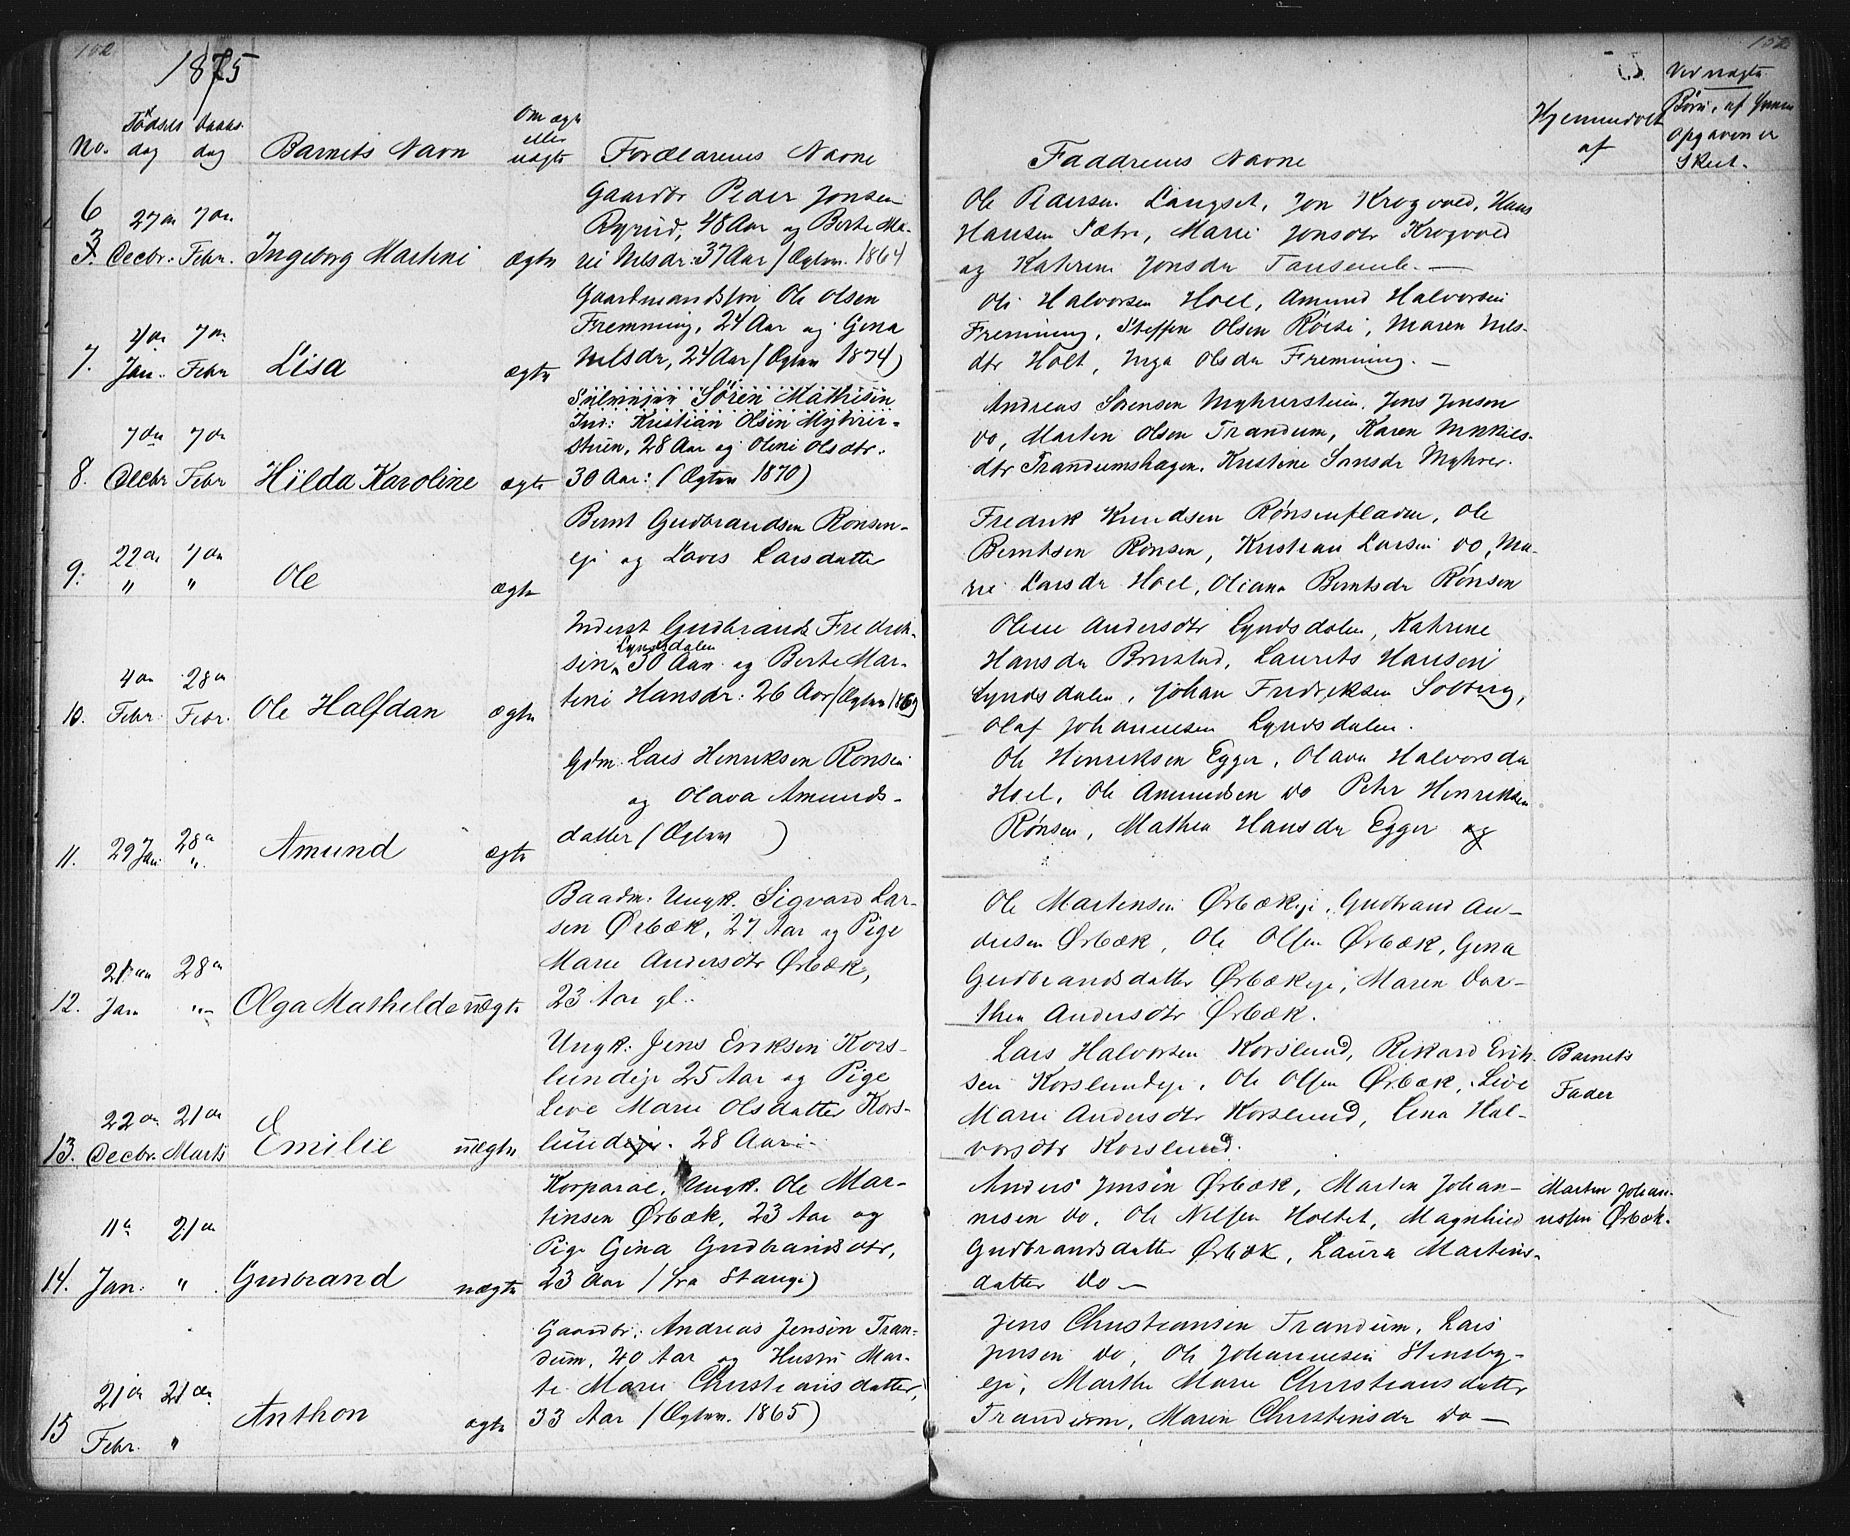 102
1875
No.
Födsels dag
Daabs dag
Barnets Navn
Om ægte eller uægte
Forældrenes Navne
6
27de Decbr.
7de Febr.
Ingeborg Martine
ægte
Gaardbr Peder Jonsen
Ryrud, 48 Aar og Berte Ma-
rie Nilsdr: 37 Aar (Ægtev. 1864
7.
4de Jan.
7de Febr
Lisa
ægte
Gaardmandssøn Ole Olsen
Fremming, 24 Aar og Gina
Nilsdr, 24 Aar (Ægtev 1874)
8.
7de Decbr
7de Febr
Hilda Karoline
ægte
Søren Mathisen
Ind: Kristian Olsen Myhrer-
stuen, 28 Aar og Oline Olsdtr.
30 Aar: (Ægtev 1870)
9.
22de "
7de "
Ole
ægte
Bernt Gudbrandsen Rønsen-
eje og Lovis Larsdatter
10.
4de Febr.
28de Febr.
Ole Halfdan
ægte
Inderst Gudbrand Fredrik-
Lyndsdalen
sen, 30 Aar og Berte Mar-
tine Hansdr: 26 Aar (Ægtev 1869)
11.
29 Jan.
28de "
Amund
ægte
Gdm. Lars Henriksen Rønsen
og Olava Amunds-
datter (Ægtev )
12.
21de Jan
28de "
Olga Mathilde
uægte
Baadm: Ungk. Sigvard Lar-
sen Ørbæk, 27 Aar og Pige
Marie Andersdtr Ørbæk,
23 Aar gl.
13.
22de Decbr.
21de Marts
Emilie
uægte
Ungk: Jens Eriksen Kors-
lundeje 25 Aar og Pige
Live Marie Olsdatter Kors-
lundeje. 28 Aar
14.
11te Jan:
21de "
Gudbrand
uægte
Korporal, Ungk. Ole Mar-
tinsen Ørbæk, 23 Aar og
Pige Gina Gudbrandsdtr,
23 Aar (fra Stange)
15
21de Febr.
21de "
Anthon
ægte
Gaardbr.: Andreas Jensen Tran-
dum, 40 Aar og Hustru Mar-
te Marie Christiansdatter,
33 Aar (Ægtev. 1865)
102
75.
Faddrenes Navne
Hjemmedøbt
af
Ved uægte
Børn, af hvem
Opgaven er
Skeet.
Ole Pedersen Langset, Jon Krogvold, Hans
Hansen Sætre, Marie Jonsdtr Krogvold
og Kathrine Jonsdr Tønsenb. —
Ole Halvorsen Hoel, Amund Halvorsen
Fremming, Steffen Olsen Røise, Maren Nils-
dtr Holt, Inga Olsdr Fremming. —
Andreas Sørensen Myhrerstuen, Jens Jensen
do, Martin Olsen Trandum, Karen Mikkels-
dtr Trandumshagen, Kristine Sørnsdr Myhrer.
Fredrik Knudsen Rønsenfladen, Ole
Berntsen Rønsen, Kristian Larsen do, Ma-
rie Larsdr Hoel, Oliana Berntsdr Rønsen
Oline Andersdtr Lyndsdalen, Kathrine
Hansdr Brustad, Laurits Hansen
Lyndsdalen, Johan Fredriksen Solberg,
Olaf Johannesen Lyndsdalen.
Ole Henriksen Egger, Olava Halvorsdr
Hoel, Ole Amundsen do Peter Henriksen
Rønsen, Mathea Hansdr Egger og
Ole Martinsen Ørbækeje, Gudbrand An-
dersen Ørbæk, Ole Olsen Ørbæk, Gina
Gudbrandsdatter Ørbækeje, Maren Dor-
thea Andersdtr Ørbæk.
Lars Halvorsen Korslund, Rikard Erik-
sen Korslundeje, Ole Olsen Ørbæk, Live
Marie Andersdtr Korslund, Lina Hal-
vorsdtr Korslund.
Barnets
Fader
Anders Jensen Ørbæk, Martin Johan-
nesen do, Ole Nilsen Holtet, Magnhild
Gudbrandsdatter Ørbæk, Laura Martins-
datter do —
Martin Johan-
nessen Ørbæk.
Jens Christiansen Trandum, Lars
Jensen do, Ole Johannesen Stensby-
eje, Marthe Marie Christiansdatter
Trandum, Maren Christensdr do —